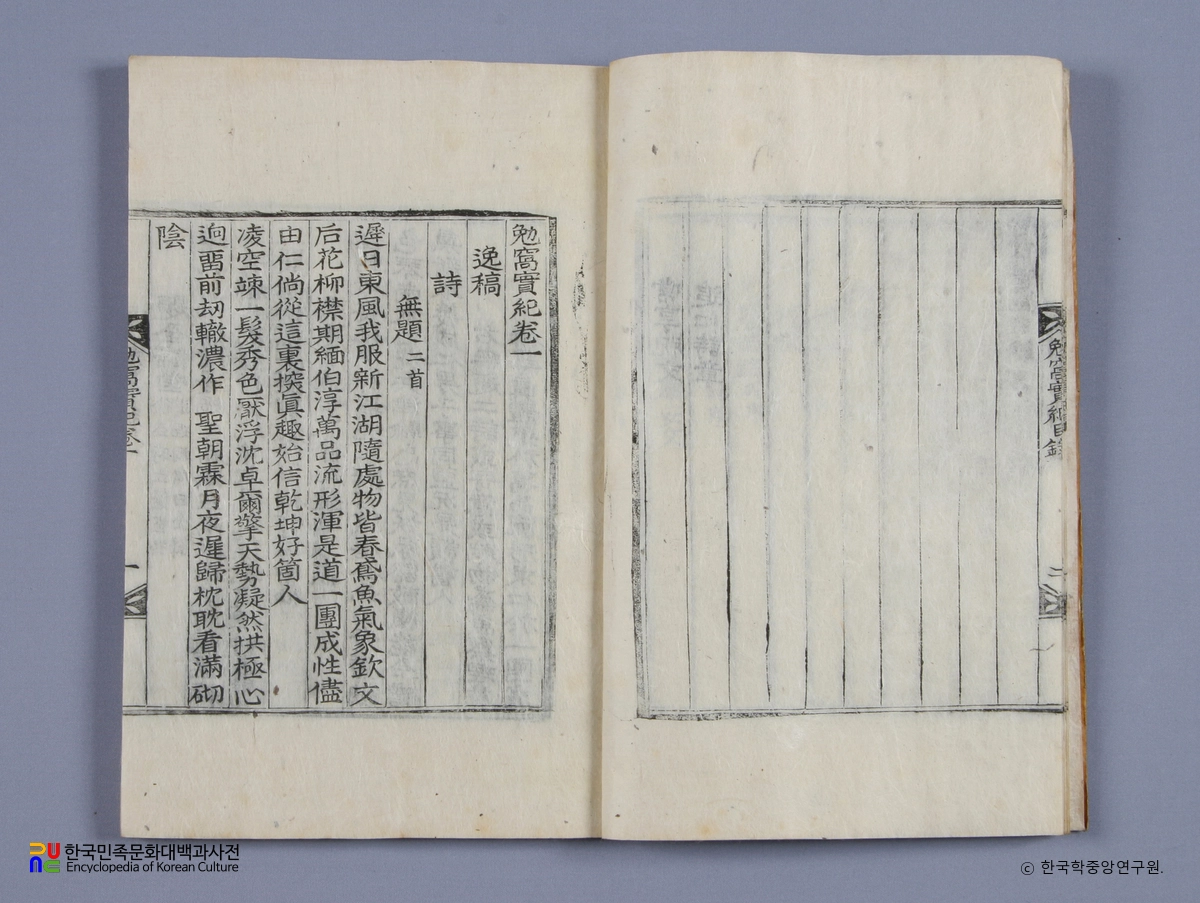 勉窩實紀目錄
二
勉窩實紀卷一
逸稿
詩
無題 二首
遲日東風我服新江湖隨處物皆春鳶魚氣象欽文
后花柳襟期緬伯淳萬品流形渾是道一團成性儘
由仁倘從這裏探眞趣始信乾坤好箇人
凌空竦一髮秀色厭浮沈卓爾擎天勢凝然拱極心
逈當前刼轍濃作 聖朝霖月夜遲歸枕耽看滿砌
陰
勉窩實紀卷一
一
한국민족문화대백과사전
Encyclopedia of Korean Culture
ⓒ 한국학중앙연구원.